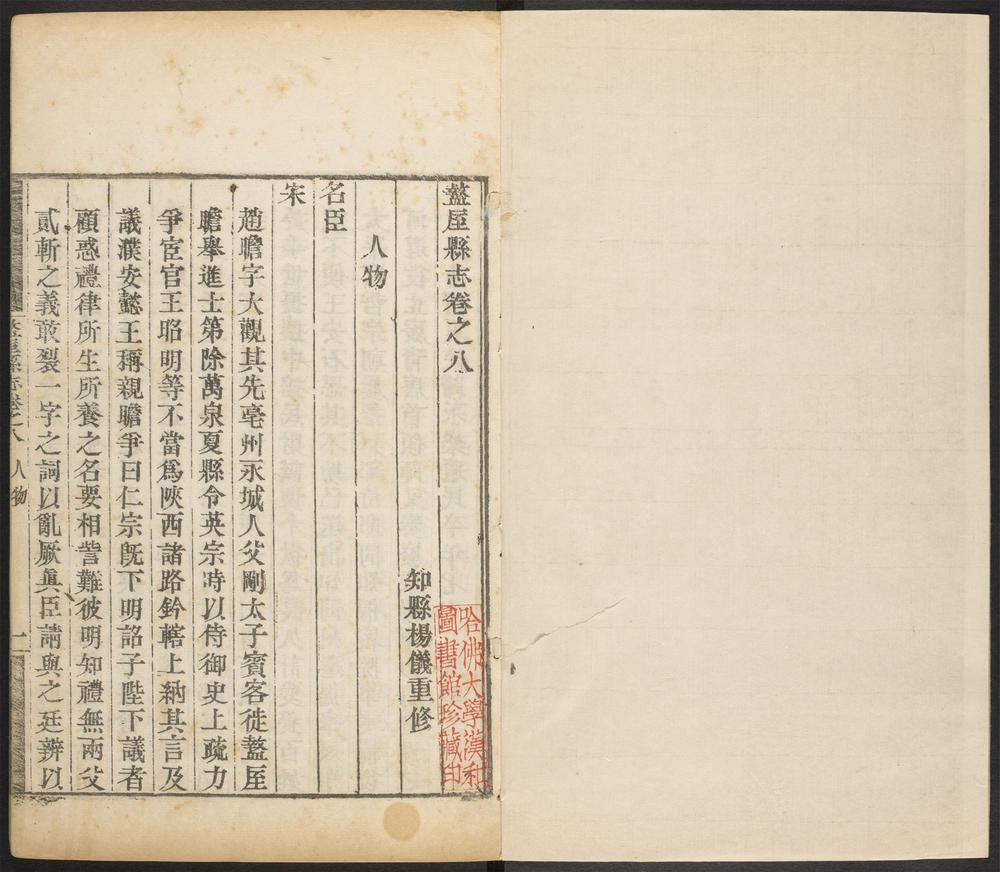 盩厔縣志卷之八
知縣楊儀重修
人物
名臣
宋
趙瞻字大觀其先亳州永城人父剛太子賓客徙盩厔
瞻舉進士第除萬泉夏縣令英宗時以侍御史上疏力
爭宦官王昭明等不當爲陝西諸路鈐轄上納其言及
議濮安懿王稱親瞻爭曰仁宗旣下明詔子陛下議者
顧惑禮律所生所養之名要相訾難彼明知禮無兩父
貳斬之義敢裂一字之詞以亂厥眞臣請與之廷辨以
盩厔縣志卷之八 人物
哈佛大學漢和
圖書館珍藏印